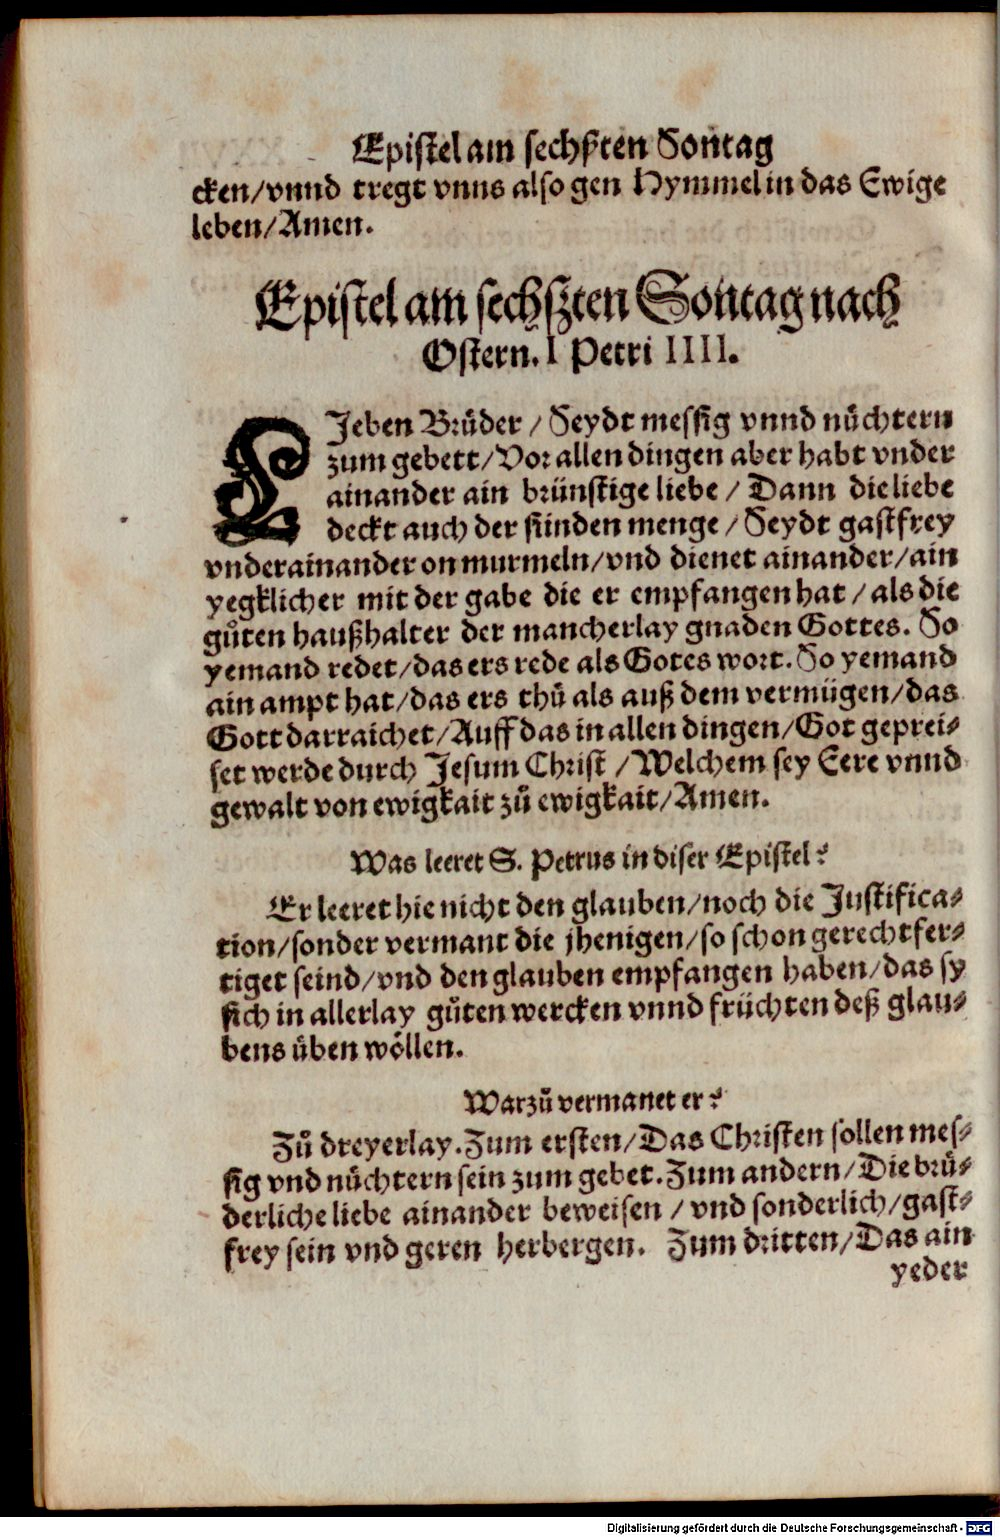 Epistel am sechßten Sontag
cken/vnnd tregt vnns also gen Hymmel in das Ewige
leben/Amen.
Epistel am sechßten Sontag nach
Ostern. I Petri IIII.
LJeben Brüder / Seydt messig vnnd nüchtern
zum gebett/Vor allen dingen aber habt vnder
ainander ain brünstige liebe / Dann die liebe
deckt auch der sünden menge / Seydt gastfrey
vnderainander on murmeln/vnd dienet ainander/ain
yegklicher mit der gabe die er empfangen hat / als die
gůten haußhalter der mancherlay gnaden Gottes. So
yemand redet/das ers rede als Gotes wort. So yemand
ain ampt hat/das ers thů als auß dem vermügen/das
Gott darraichet/Auff das in allen dingen/Got geprei⸗
set werde durch Jesum Christ /Welchem sey Eere vnnd
gewalt von ewigkait zů ewigkait/Amen.
Was leeret S. Petrus in diser Epistel?
Er leeret hie nicht den glauben/noch die Justifica⸗
tion/sonder vermant die jhenigen/so schon gerechtfer⸗
tiget seind/vnd den glauben empfangen haben/das sy
sich in allerlay gůten wercken vnnd früchten deß glau⸗
bens üben wöllen.
Warzů vermanet er?
Zů dreyerlay. Zum ersten/Das Christen sollen mes⸗
sig vnd nüchtern sein zum gebet. Zum andern/Die brü⸗
derliche liebe ainander beweisen / vnd sonderlich/gast⸗
frey sein vnd geren herbergen. Zum dritten/Das ain
yeder
Digitalisierung gefördert durch die Deutsche Forschungsgemeinschaft - DFG